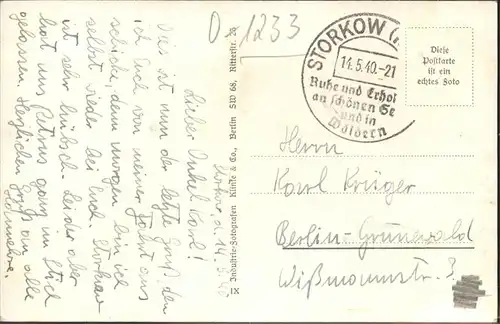 D-1233
STORKOW (
14.5.40.-21
Ruhe und Erhol
an schönen Se
und in
Wäldern
Diese
Postkarte
ist ein
echtes Foto
Storkow d. 14.5.40
Lieber Onkel Karl!
Dies ist nun der letzte Gruß, den
ich Euch von meiner Fahrt aus
schicke, denn morgen bin ich
selbst wieder bei Euch. Storkow
ist sehr hübsch. Leider aber
hat uns Petrus ganz im Stich
gelassen. Herzlichen Gruß an alle
Hannelore.
IX Industrie-Fotografen Klinke & Co., Berlin SW 68, Ritterstr. 26
Herrn
Karl Krüger
Berlin-Grunewald
Wißmannstr.